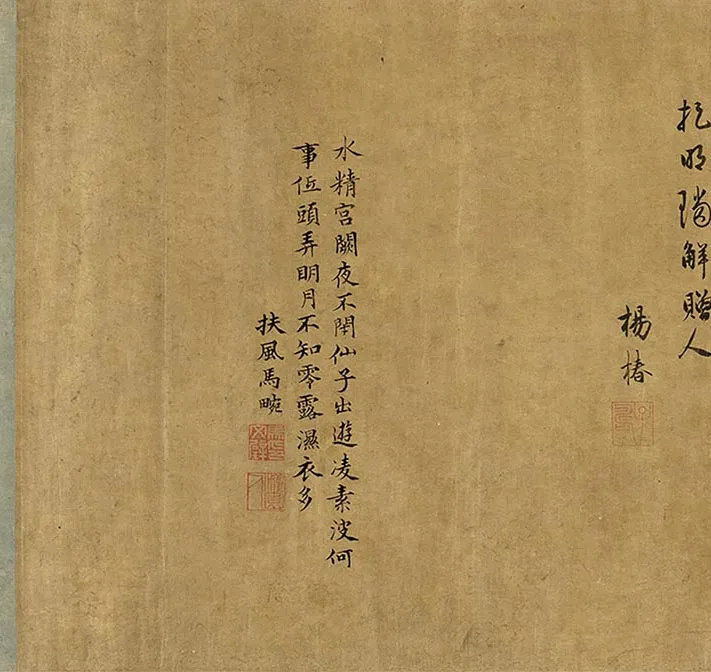 把明璫解贈人
楊椿
水精宮闕夜不閇仙子出遊凌素波何
事低頭弄明月不知零露濕衣多
扶風馬畹